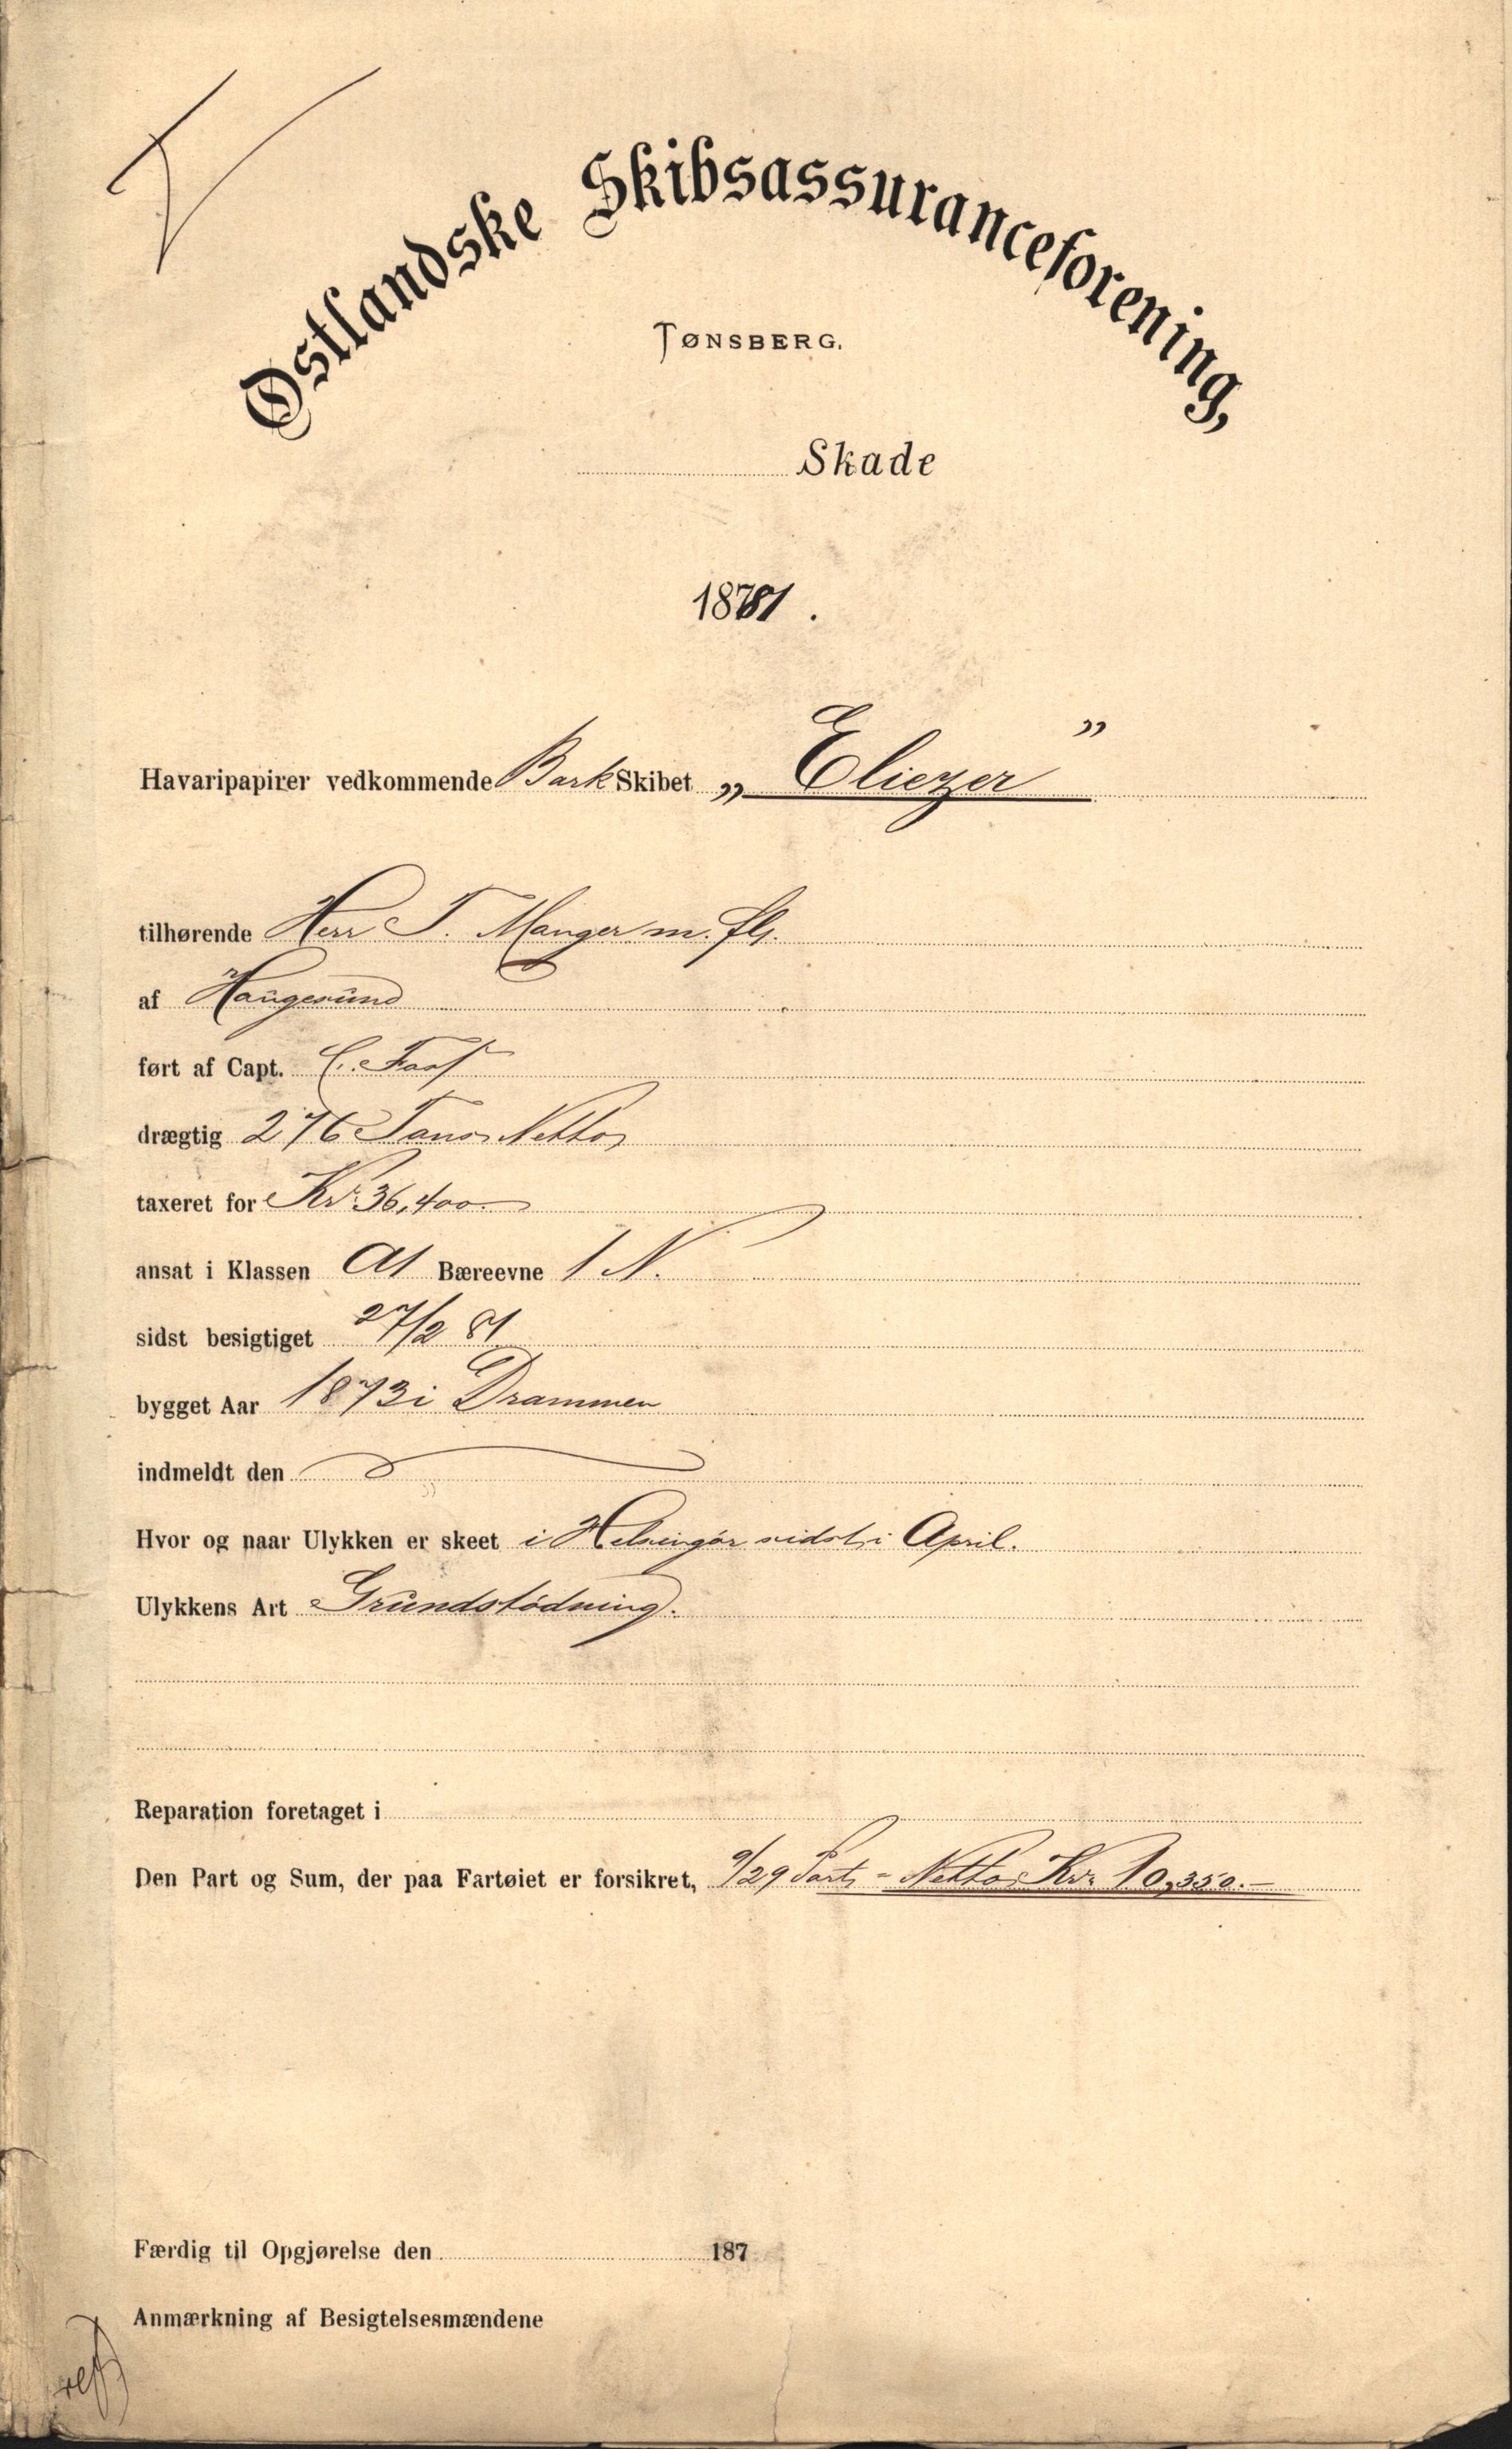 Østlandske Skibsassuranceforening,
TØNSBERG.
Skade
1881.
Havaripapirer vedkommende Bark Skibet „Eliezer”
tilhørende Herr T. Manger m. fl.
af Haugesund
ført af Capt. C.
drægtig 276 Tons Netto
taxeret for Kr. 36,400
ansat i Klassen A1 Bæreevne 1 N.
sidst besigtiget 27/2 81
bygget Aar 1873 i Drammen
indmeldt den
Hvor og naar Ulykken er skeet i Helsingør sidst i April.
Ulykkens Art Grundstødning.
Reparation foretaget i
Den Part og Sum, der paa Fartøiet er forsikret, 9/29 Part = Netto Kr. 10,350.-
Færdig til Opgjørelse den 187
Anmærkning af Besigtelsesmændene